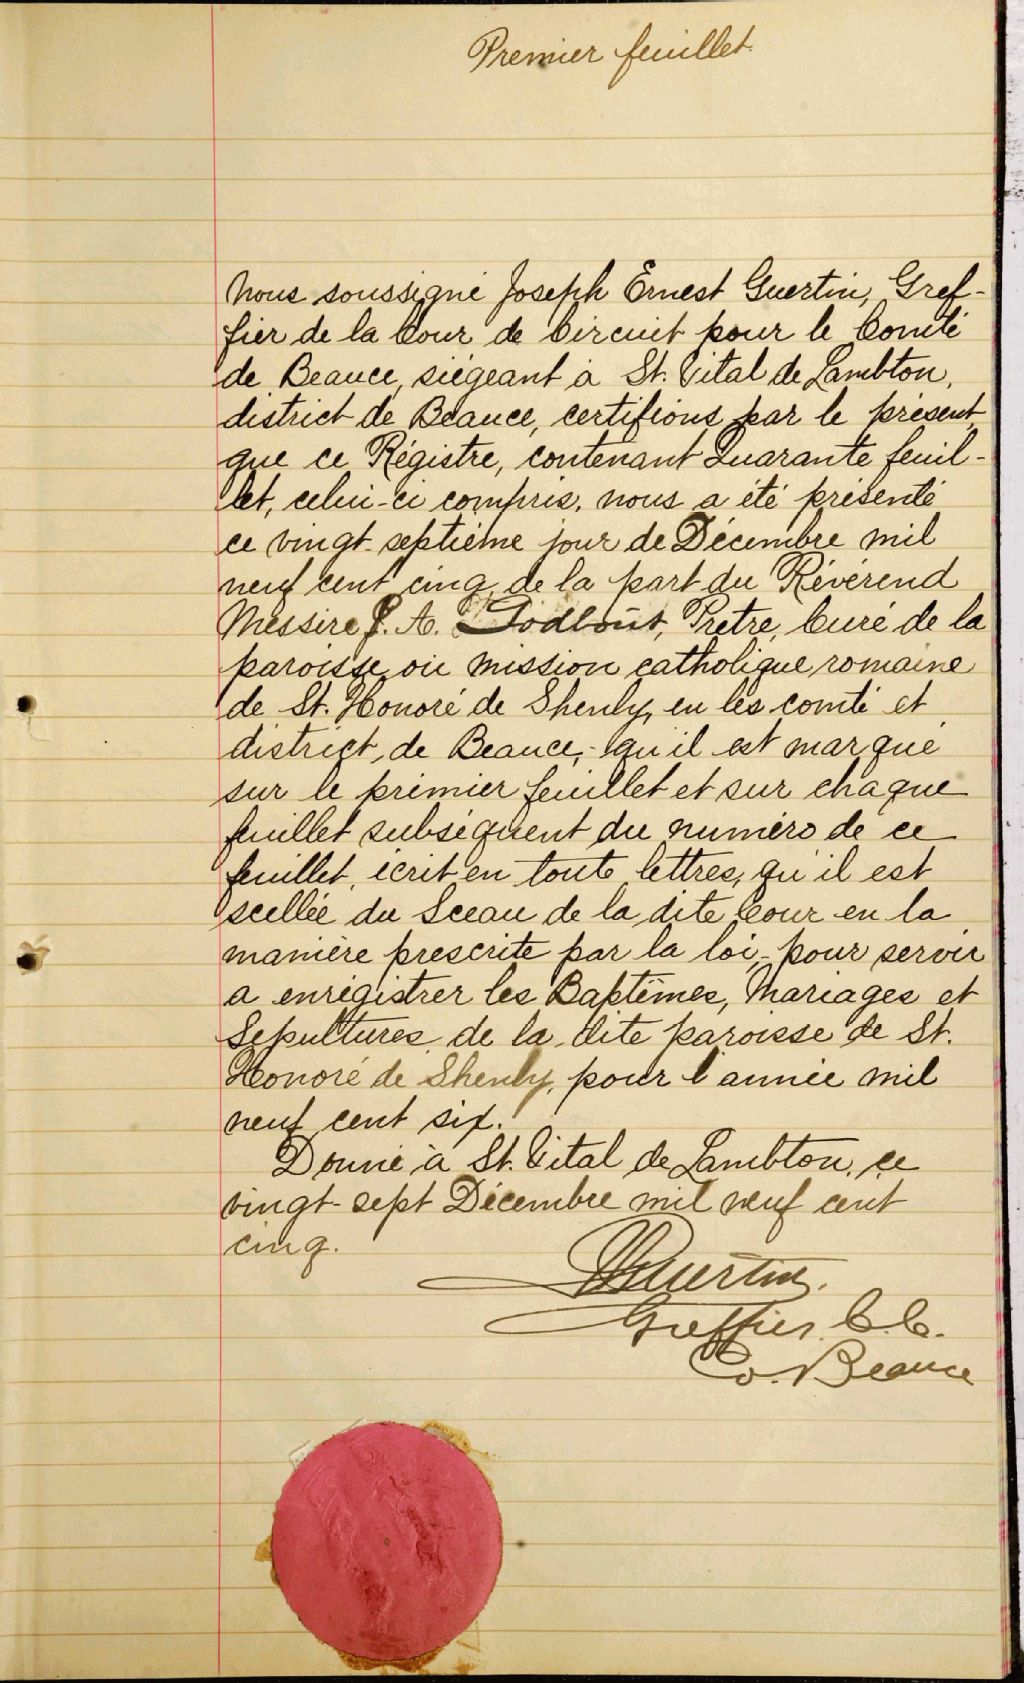 Premier feuillet.
Nous soussigné Joseph Ernest Guertin, Gref-
fier de la Cour de Circuit pour le Comté
de Beauce, siégeant à St. Vital de Lambton,
district de Beauce, certifions par le présent,
que ce Régistre, contenant Quarante feuil-
let, celui-ci compris, nous a été présenté
ce vingt-septième jour de Décembre mil
neuf cent cinq, de la part du Révérend
Messire J. A. Godbout, Prêtre, Curé de la
paroisse ou mission catholique romaine
de St. Honoré de Shenly, en les comté et
district, de Beauce, - qu'il est marqué
sur le premier feuillet et sur chaque
feuillet subséquent du numéro de ce
feuillet, écrit en toute lettres, qu'il est
scellée du Sceau de la dite Cour en la
manière prescrite par la loi, - pour servir
a enrégistrer les Baptêmes, Mariages et
Sepultures de la dite paroisse de St.
Honoré de Shenly, pour l'année mil
neuf cent six.
Donné à St. Vital de Lambton, ce
vingt-sept Décembre mil neuf cent
cinq.
Guertin.
Greffier C. C.
Co. Beauce